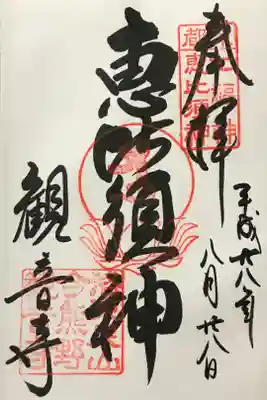 奉拝
平成廿八年
八月廿八日
恵比須神
観音寺